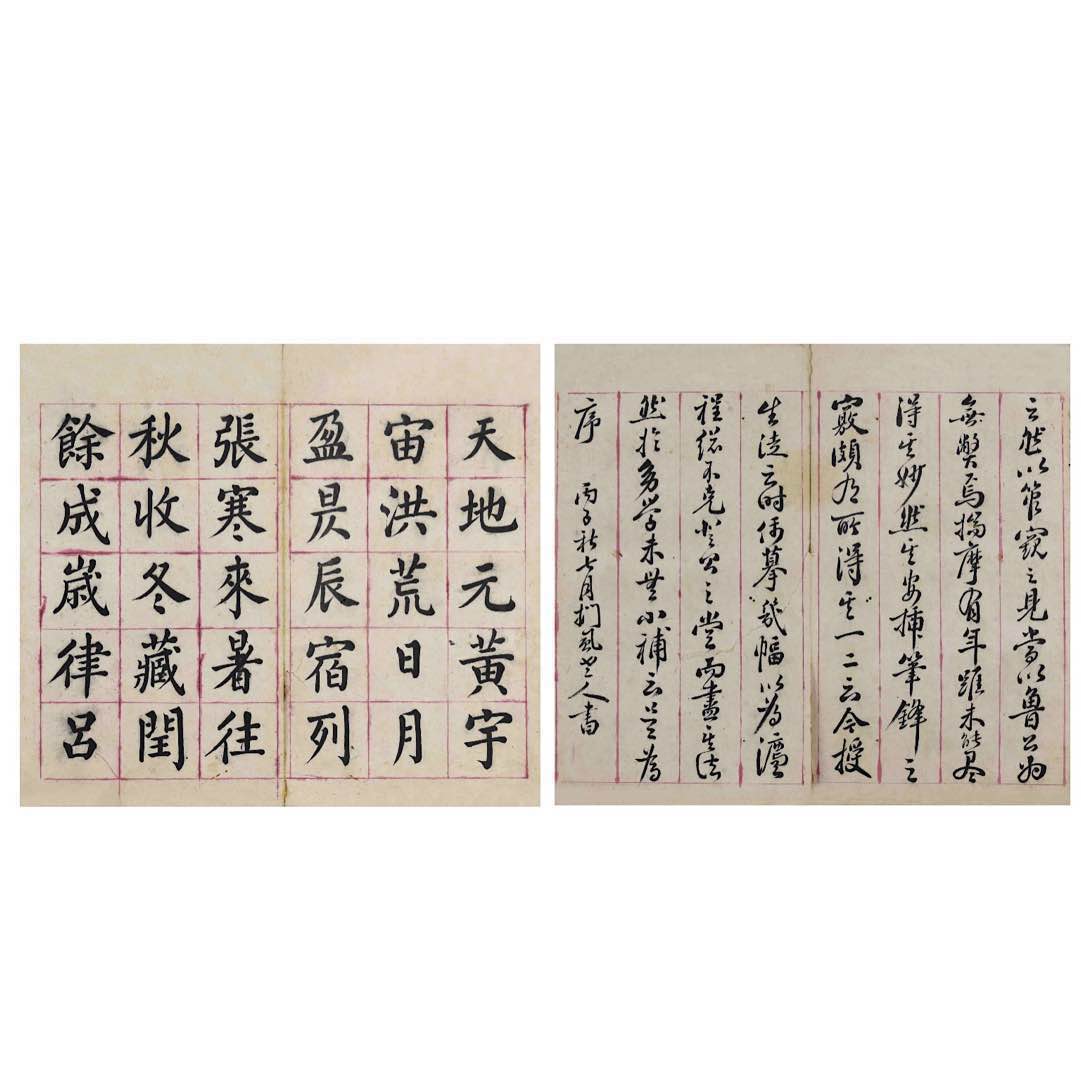 天地元黃宇
宙洪荒日月
盈昃辰宿列
張寒來暑往
秋收冬藏閏
餘成歲律呂
云然以管窺之見當以魯公為
無弊焉揣摩有年雖未能盡
得其妙然其安插筆鋒之
竅頗有所得其一二云今授
生徒之時偶摹幾幅以為
程 不克登公之堂而盡其法
然於 學未無小補云是為
序 丙子秋七月捫虱老人書